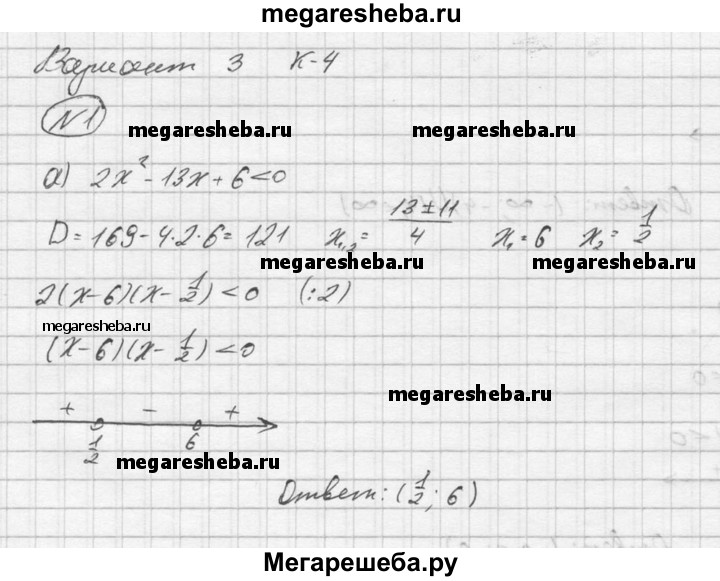 megaresheba.ru
Вариант 3 К-4
№1
megaresheba.ru megaresheba.ru
а) 2x² - 13x + 6 < 0
D = 169 - 4·2·6 = 121 x₁,₂ = (13 ± 11)/4 x₁ = 6 x₂ = 1/2
megaresheba.ru megaresheba.ru
2(x - 6)(x - 1/2) < 0 (:2)
megaresheba.ru
(x - 6)(x - 1/2) < 0
megaresheba.ru
+ - +
1/2 6
megaresheba.ru
Ответ: (1/2; 6)
Мегарешеба.ру